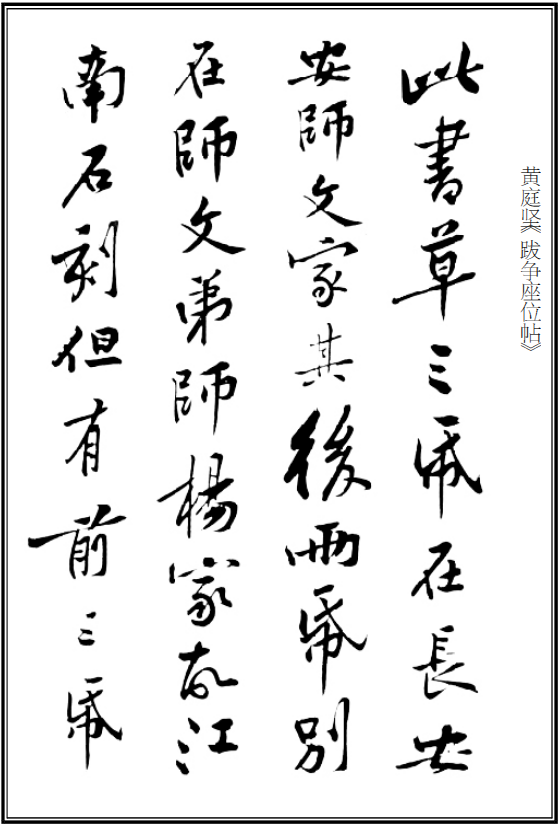 黄庭坚《跋争座位帖》
此書草三紙在長安
安師文家其後兩紙别
在師文弟師楊家故江
南石刻但有前三紙